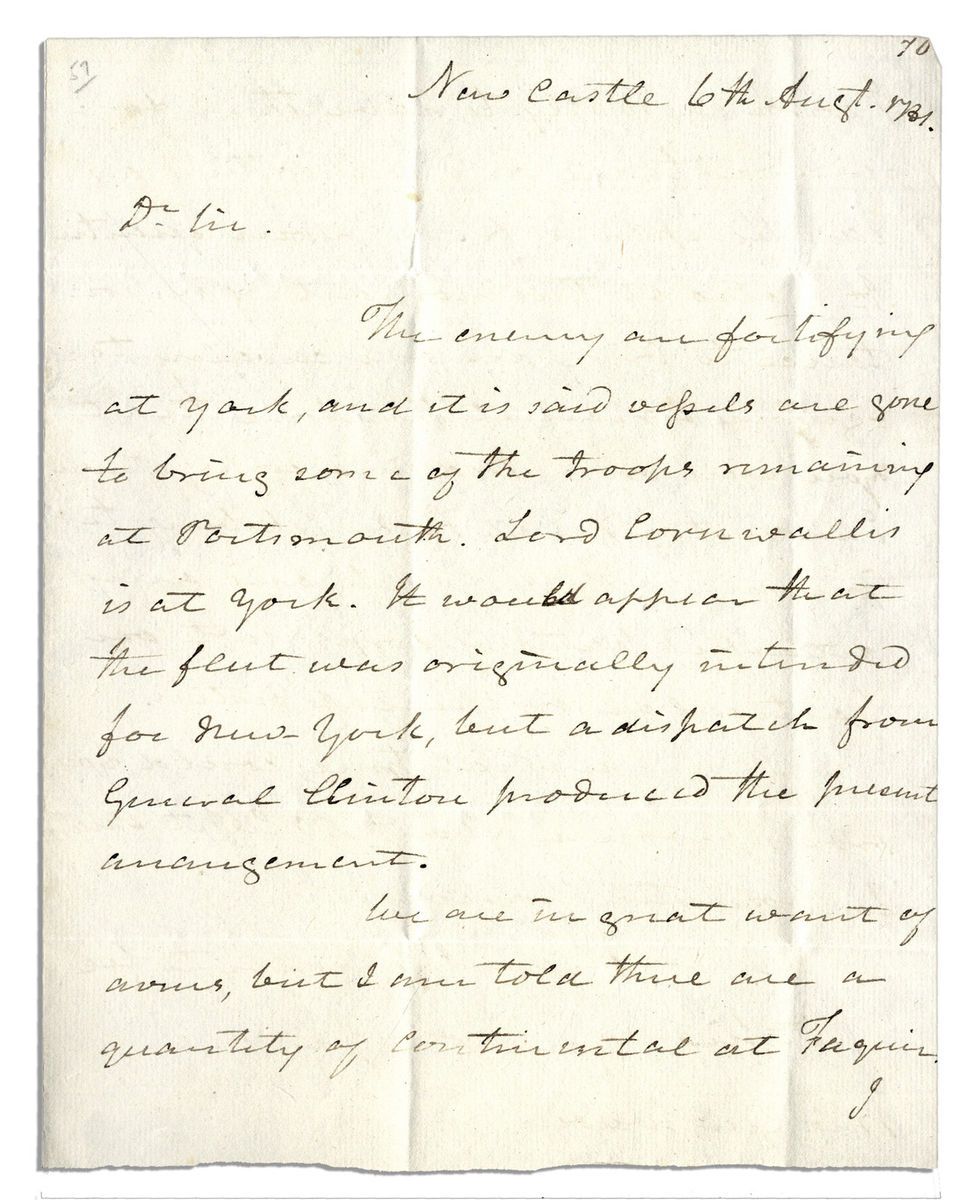 59
70
New Castle 6th Augt. 1781.
Dr Sir.
The enemy are fortifying
at York, and it is said veſsels are gone
to bring some of the troops remaining
at Portsmouth. Lord Cornwallis
is at York. It would appear that
the fleet was originally intended
for New-York, but a dispatch from
General Clinton produced the present
arrangement.
We are in great want of
arms, but I am told there are a
quantity of Continental at Faquier.
I